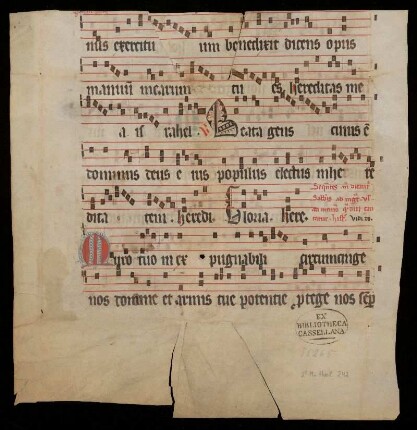 nus exercitu um benedixit dicens opus
manuū mearum tu es hereditas me
a is rahel. V Beata gens cuius ē
dominus deus e ius populus electus in here
dita tem. heredi. Gloria. here.
Muro tuo in ex pugnabili circumcinge
nos domine et armis tue potentie protege nos sēp
EX
BIBLIOTHECA
CASSELLANA